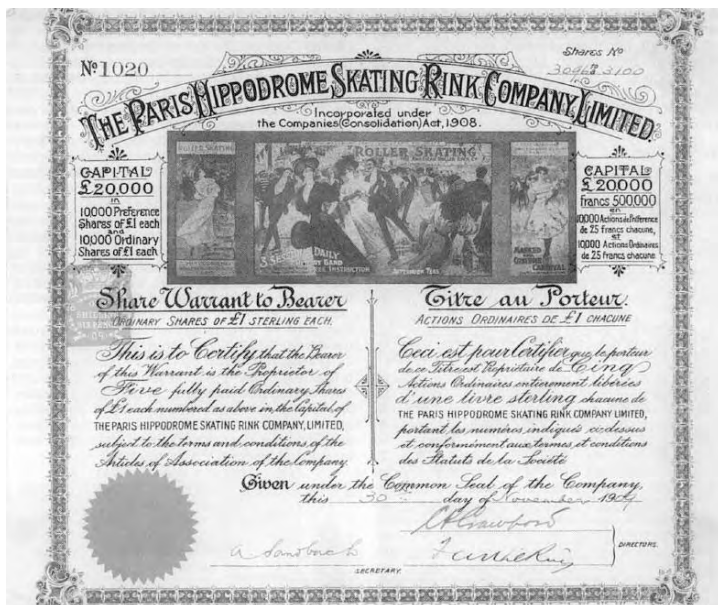 Nº 1020
Shares Nº
THE PARIS HIPPODROME SKATING RINK COMPANY, LIMITED.
Incorporated under
the Companies (Consolidation) Act, 1908.
CAPITAL
£20,000
in
10,000 Preference
Shares of £1 each
and
10,000 Ordinary
Shares of £1 each
ROLLER SKATING
"ROLLER SKATING"
3 SESSIONS DAILY
INSTRUCTION
AFTERNOON TEAS
CARNIVAL
CAPITAL
£20,000
francs 500,000
en
10,000 Actions de Préférence
de 25 francs chacune,
et
10,000 Actions Ordinaires
de 25 francs chacune
Share Warrant to Bearer
ORDINARY SHARES OF £1 STERLING EACH.
This is to Certify, that the Bearer
of this Warrant is the Proprietor of
Five fully paid Ordinary Shares
of £1 each numbered as above in the Capital of
THE PARIS HIPPODROME SKATING RINK COMPANY, LIMITED,
subject to the terms and conditions, of the
Articles of Association of the Company.
Titre au Porteur.
ACTIONS ORDINAIRES DE £1 CHACUNE
Ceci est pour Certifier que le porteur
de ce Titre est Propriétaire de Cinq
Actions Ordinaires entièrement libérées
d'une livre sterling chacune de
THE PARIS HIPPODROME SKATING RINK COMPANY LIMITED,
portant les numéros, indiqués ci-dessus
et conformément aux termes, et conditions
des Statuts de la Société
Given under the Common Seal of the Company,
this 30th day of November 1909
A Sandbach
SECRETARY.
DIRECTORS.